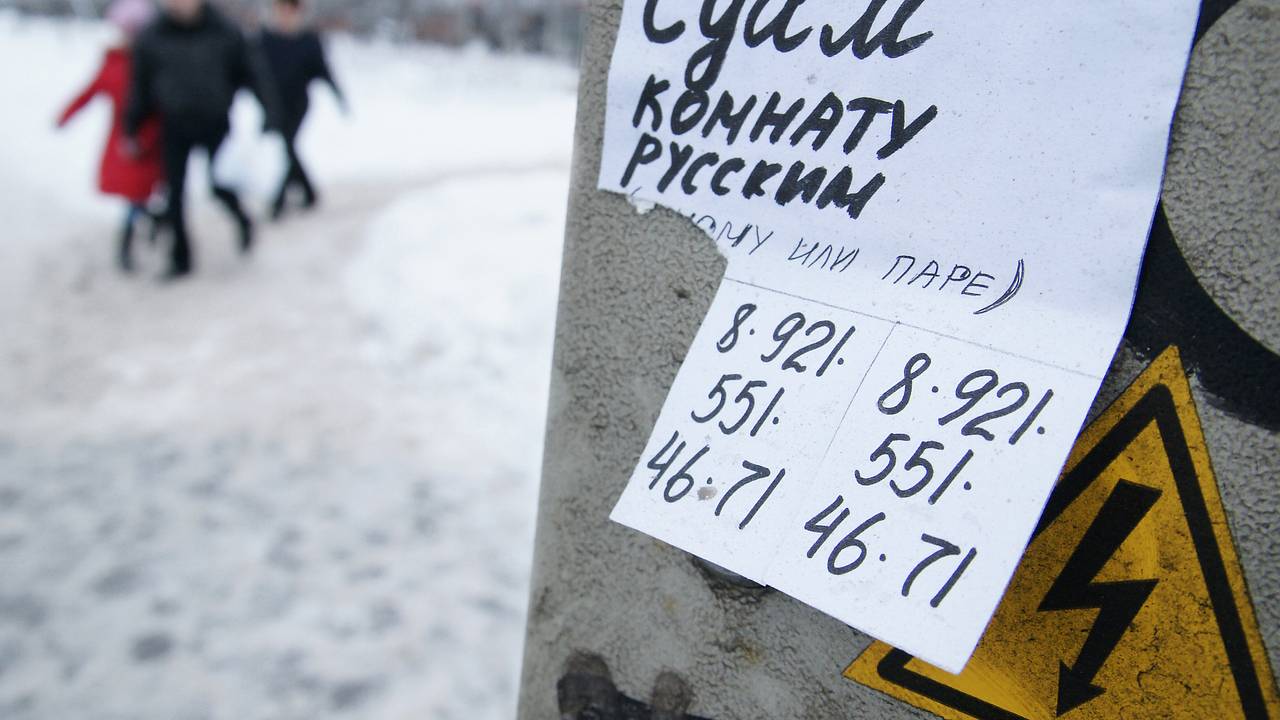 Сдам
КОМНАТУ
РУССКИМ
ИЛИ ПАРЕ)
8·921·
551·
46·71
8·921·
551·
46·71